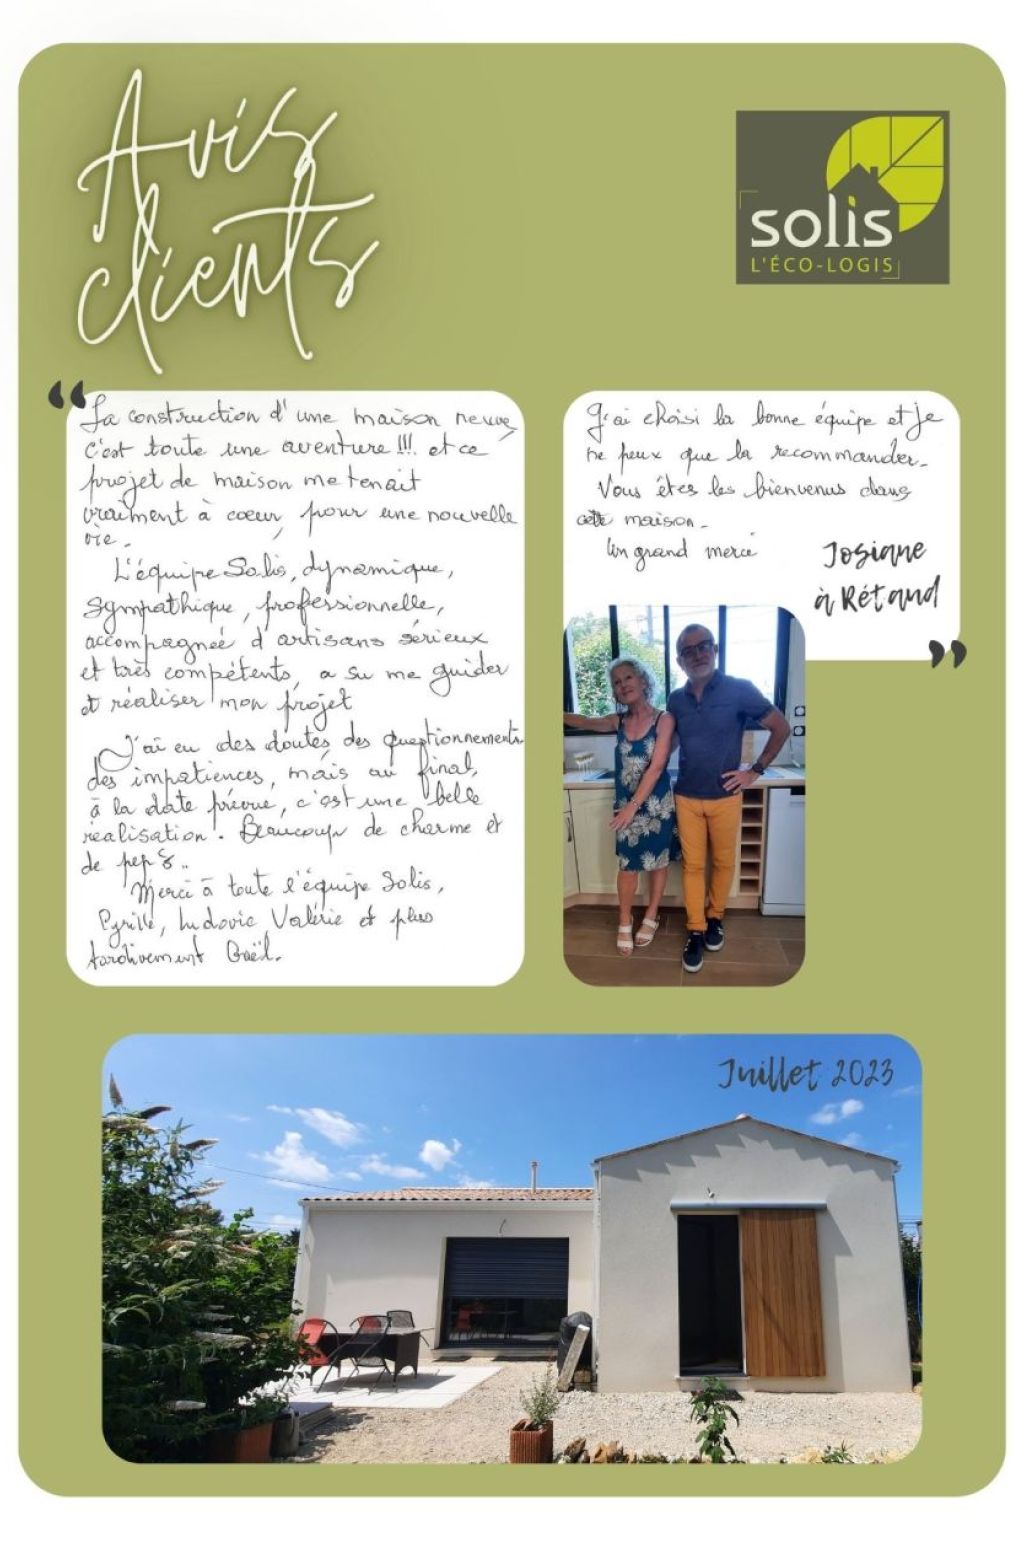 Avis
clients
solis
L'ÉCO-LOGIS
“
La construction d'une maison neuve
c'est toute une aventure !!! et ce
projet de maison me tenait
vraiment à coeur, pour une nouvelle
vie.
L'équipe Solis, dynamique,
sympathique, professionnelle,
accompagnée d'artisans sérieux
et très compétents, a su me guider
et réaliser mon projet
J'ai eu des doutes, des questionnements
des impatiences, mais au final,
à la date prévue, c'est une belle
réalisation. Beaucoup de charme et
de pep's..
Merci à toute l'équipe Solis,
Cyrille, Ludovic Valérie et plus
tardivement Gaël.
J'ai choisi la bonne équipe et je
ne peux que la recommander.
Vous êtes les bienvenus dans
cette maison.
Un grand merci
Josiane
à Rétaud
”
Juillet 2023